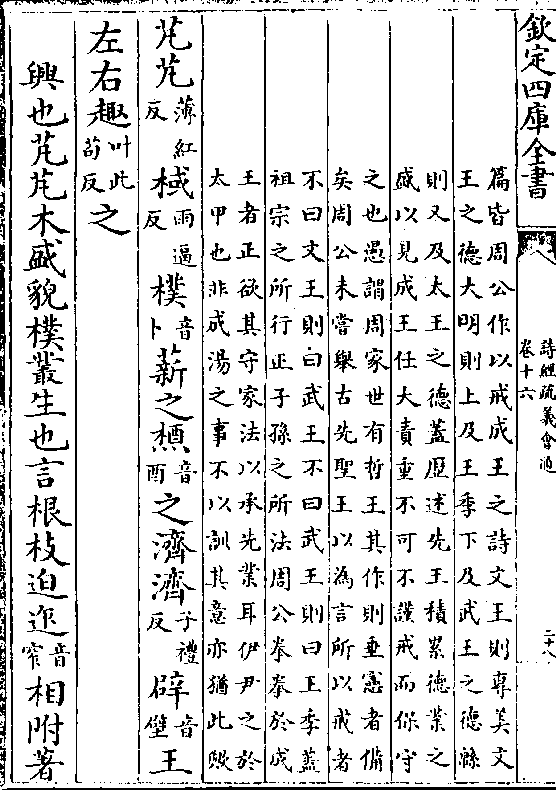 欽定四庫全書
詩經疏義會通
卷十六
二十八
篇皆周公作以戒成王之詩文王則專美文
王之德大明則上及王季下及武王之德緜
則又及太王之德蓋歷述先王積累德業之
盛以見成王任大責重不可不謹戒而保守
之也愚謂周家世有哲王其作則垂憲者備
矣周公未嘗舉古先聖王以為言所以戒者
不曰文王則曰武王不曰武王則曰王季蓋
祖宗之所行正子孫之所法周公拳拳於成
王者正欲其守家法以承先業耳伊尹之於
太甲也非成湯之事不以訓其意亦猶此歟
芃芃薄紅反棫雨逼反樸音卜薪之槱音酉之濟濟子禮反辟音璧王
左右趣叶此茍反之
興也芃芃木盛貌樸叢生也言根枝迫迮音窄相附著